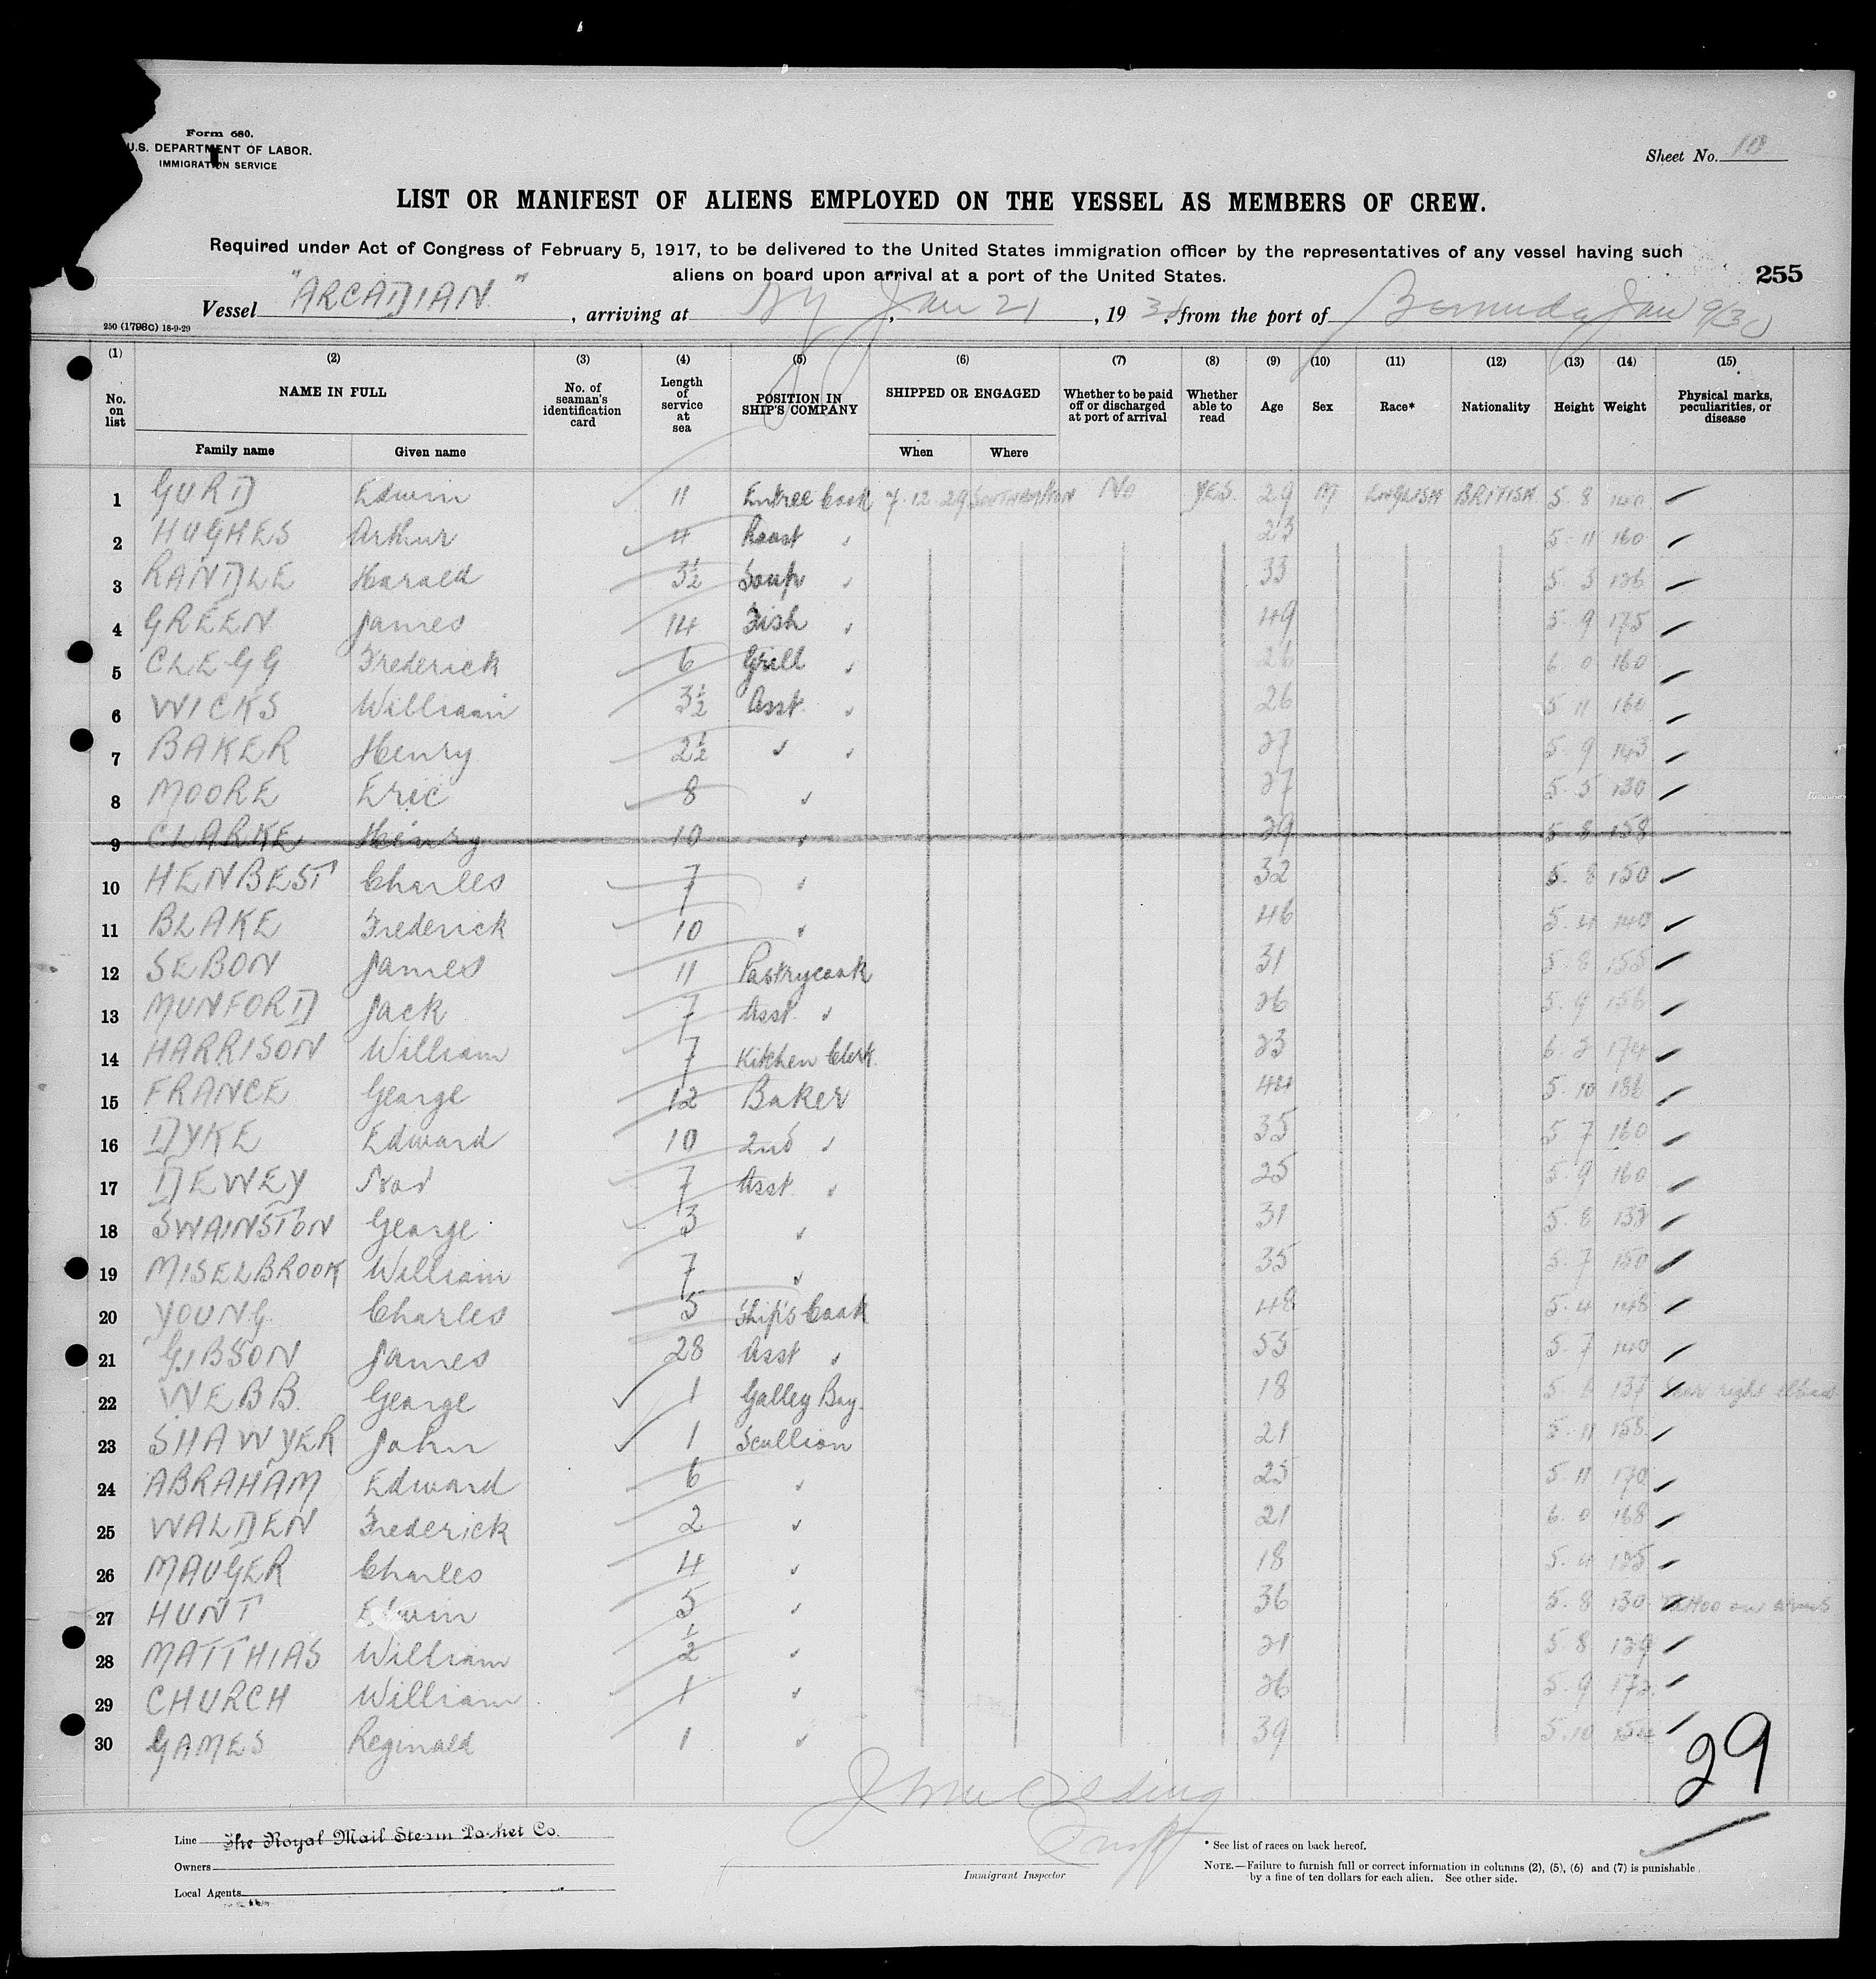 Form 680.
U.S. DEPARTMENT OF LABOR.
IMMIGRATION SERVICE
Sheet No. 10
LIST OR MANIFEST OF ALIENS EMPLOYED ON THE VESSEL AS MEMBERS OF CREW.
Required under Act of Congress of February 5, 1917, to be delivered to the United States immigration officer by the representatives of any vessel having such
aliens on board upon arrival at a port of the United States.
255
Vessel "ARCADIAN", arriving at NY, Jan 21, 1930, from the port of Bermuda Jan 9/30
250 (1798c) 18-9-29
(1) (2) (3) (4) (5) (6) (7) (8) (9) (10) (11) (12) (13) (14) (15)
No. on list NAME IN FULL No. of seaman's identification card Length of service at sea POSITION IN SHIP'S COMPANY SHIPPED OR ENGAGED Whether to be paid off or discharged at port of arrival Whether able to read Age Sex Race* Nationality Height Weight Physical marks, peculiarities, or disease
Family name Given name When Where
1 GURD Edwin 11 Entree Cook 7.12.29 SOUTHAMPTON NO YES. 29 M ENGLISH BRITISH 5. 8 140
2 HUGHES Arthur 4 Roast " 23 5. 11 160
3 RANDLE Harald 3½ Soup " 33 5. 5 136
4 GREEN James 14 Fish " 49 5. 9 175
5 CLEGG Frederick 6 Grill " 26 6. 0 160
6 WICKS William 3½ Asst. " 26 5 11 160
7 BAKER Henry 2½ " " 27 5. 9 143
8 MOORE Eric 8 " 27 5. 5 130
9 CLARKE Henry 10 " 29 5 8 158
10 HENBEST Charles 7 " 32 5. 8 150
11 BLAKE Frederick 10 " 46 5. 4 140
12 SEBON James 11 Pastrycook 31 5. 8 155
13 MUNFORD Jack 7 Asst. " 26 5. 9 156
14 HARRISON William 7 Kitchen Clerk 23 6. 2 174
15 FRANCE George 12 Baker 44 5. 10 188
16 DYKE Edward 10 2nd " 35 5 7 160
17 DEWEY 7 Asst. " 25 5. 9 160
18 SWAINSTON George 3 " 31 5. 8 138
19 MISELBROOK William 7 " 35 5. 7 150
20 YOUNG. Charles 5 Ship's Cook 48 5. 4 148
21 GIBSON James 28 Asst " 55 5. 7 140
22 WEBB. George 1 Galley Boy. 18 5. 6 137 Scar right elbow
23 SHAWYER John 1 Scullion 21 5. 11 158
24 ABRAHAM Edward 6 " 25 5. 11 170
25 WALDEN Frederick 2 " 21 6. 0 168
26 MAUGER Charles 4 " 18 5. 4 125
27 HUNT Edwin 5 " 36 5. 8 130 Tattoo on arms
28 MATTHIAS William ½ " 21 5. 8 129
29 CHURCH William 1 " 26 5. 9 172
30 GAMES Reginald 1 " 39 5. 10 154
29
Line The Royal Mail Steam Packet Co.
Owners
Local Agents
Immigrant Inspector
* See list of races on back hereof.
NOTE.—Failure to furnish full or correct information in columns (2), (5), (6) and (7) is punishable
by a fine of ten dollars for each alien. See other side.